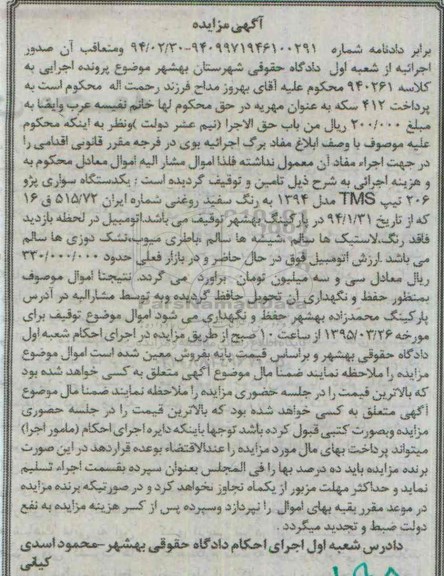 آگهی مزایده
برابر دادنامه شماره ۹۴۰۹۹۷۱۹۴۶۱۰۰۲۹۱-۹۴/۰۲/۳۰ ومتعاقب آن صدور
اجرائیه از شعبه اول دادگاه حقوقی شهرستان بهشهر موضوع پرونده اجرایی به
کلاسه ۹۴۰۲۶۱ محکوم علیه آقای بهروز مداح فرزند رحمت اله محکوم است به
پرداخت ۴۱۲ سکه به عنوان مهریه در حق محکوم لها خانم نفیسه عرب وایفنا به
مبلغ ۲۰۰/۰۰۰ ریال من باب حق الاجرا (نیم عشر دولت )ونظر به اینکه محکوم
علیه موصوف با وصف ابلاغ مفاد برگ اجرائیه بوی در فرجه مقرر قانونی اقدامی را
در جهت اجراء مفاد آن معمول نداشته فلذا اموال مشار الیه اموال معادل محکوم به
و هزینه اجرائی به شرح ذیل تامین و توقیف گردیده است : یکدستگاه سواری پژو
۲۰۶ تیپ TMS مدل ۱۳۹۴ به رنگ سفید روغنی شماره ایران ۷۲/۵۱۵ ق ۱۶
که از تاریخ ۹۴/۱/۳۱ در پارکینگ بهشهر توقیف می باشد.اتومبیل در لحظه بازدید
فاقد رنگ،لاستیک ها سالم شیشه ها سالم باطری معیوب،تشک دوزی ها سالم
می باشد .ارزش اتومبیل فوق در حال حاضر و در بازار فعلی حدود ۳۳۰/۰۰۰/۰۰۰
ریال معادل سی و سه میلیون تومان برآورد می گردد. نتیجتا اموال موصوف
بمنظور حفظ و نگهداری آن تحویل حافظ گردیده وبه توسط مشارالیه در آدرس
پارکینگ محمدزاده بهشهر حفظ و نگهداری می شود اموال موضوع توقیف برای
مورخه ۱۳۹۵/۰۳/۲۶ از ساعت ۱۰ صبح از طریق مزایده در اجرای احکام شعبه اول
دادگاه حقوقی بهشهر و براساس قیمت پایه بفروش معین شده است اموال موضوع
مزایده را ملاحظه نمایند ضمنا مال موضوع آگهی متعلق به کسی خواهد شده بود
که بالاترین قیمت را در جلسه حضوری مزایده را ملاحظه نمایند ضمنا مال موضوع
آگهی متعلق به کسی خواهد شده بود که بالاترین قیمت را در جلسه حضوری
مزایده وبصورت کتبی قبول کرده باشد توجها باینکه دایره اجرای احکام (مامور اجرا)
میتواند پرداخت بهای مال مورد مزایده را عندالاقتضاء بوعده قراردهد در این صورت
برنده مزایده باید ده درصد بها را فی المجلس بعنوان سپرده بقسمت اجراء تسلیم
نماید و حداکثر مهلت مزبور از یکماه تجاوز نخواهد کرد و در صورتیکه برنده مزایده
در موعد مقرر بقیه بهای اموال را نپردازد وسپرده پس از کسر هزینه مزایده به نفع
دولت ضبط و تجدید میگردد .
دادرس شعبه اول اجرای احکام دادگاه حقوقی بهشهر -محمود اسدی
کیانی